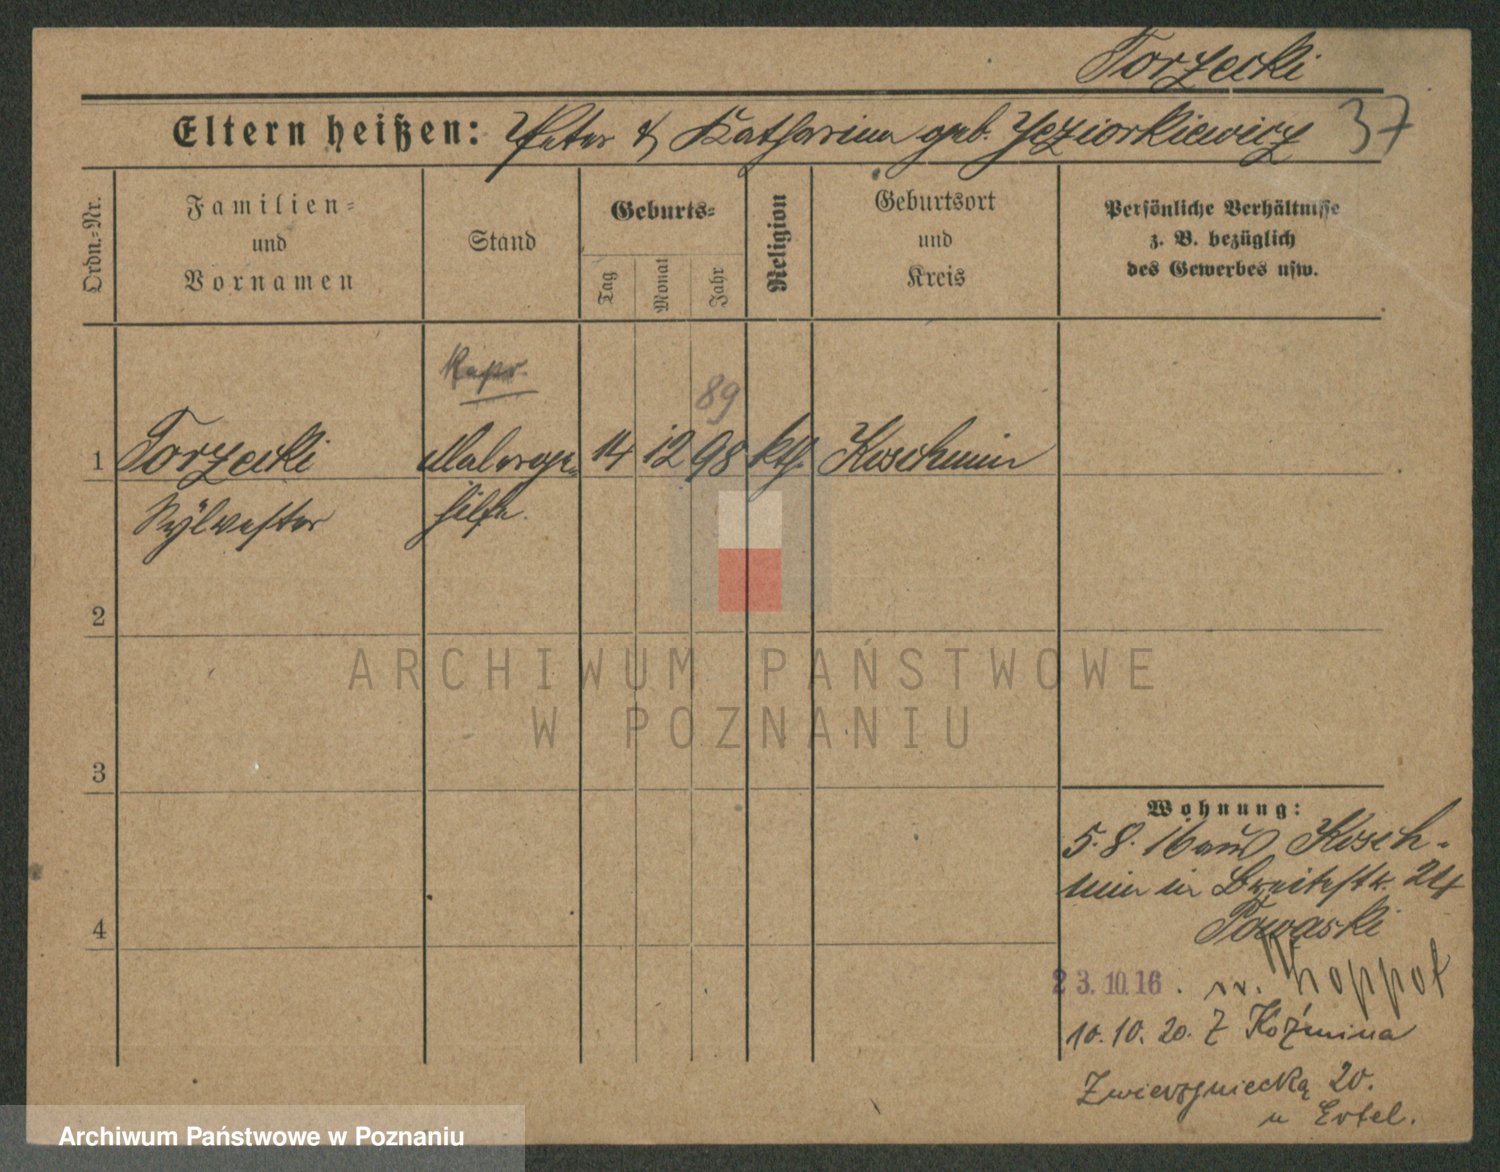 Torzecki
Eltern heißen: Peter & Katharina geb. Jeziorkiewicz 37
Ordn.=Nr.
Familien=
und
Vornamen
Stand
Geburts=
Tag
Monat
Jahr
Religion
Geburtsort
und
Kreis
Persönliche Verhältnisse
z. B. bezüglich
des Gewerbes usw.
89
1 Torzecki Malerge= 14 12 98 kth. Koschmin
Sylvester hilfe.
2
ARCHIWUM PAŃSTWOWE
W POZNANIU
3
4
Wohnung:
5.8.16 aus Kosch-
min in Breitestr. 24
Powąski
23.10.16. n. Zoppot
10.10.20. Z Koźmina
Zwierzyniecka 20.
u Ertel.
Archiwum Państwowe w Poznaniu